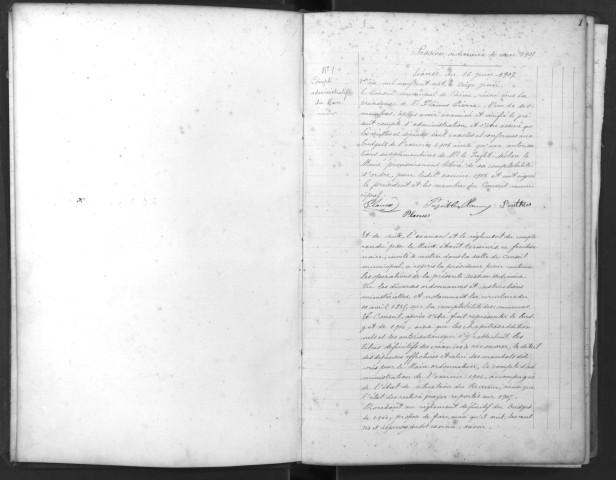 1
Session ordinaire de mai 1907
Séance du 16 juin 1907
N° 1
Compte
administratif
du Maire
L'an mil neuf cent sept, le seize juin
le Conseil municipal de réuni sous la
présidence de M. Pierre, l'un de ses
membres, après avoir examiné et vérifié le pré
sent compte d'administration, et s'être assuré que
les recettes et dépenses sont exactes et conformes aux
budgets de l'exercice 1906 ainsi qu'aux autorisa
tions supplémentaires de Mr le Préfet, déclare le
Maire provisoirement libéré de sa comptabilité
d'ordre, pour ledit exercice 1906 et ont signé
le président et les membres du Conseil muni
cipal.
Planes
Et de suite, l'examen et le règlement du compte
rendu par le Maire étant terminés ce fonction
naire, invité à rentrer dans la salle du Conseil
municipal, a repris la présidence pour continuer
les opérations de la présente session ordinaire.
Vu les diverses ordonnances et instructions
ministérielles, et notamment la circulaire du
10 avril 1835, sur la comptabilité des communes
Le Conseil, après s'être fait représenter le bud
get de 1906, ainsi que les chapitres addition
nels et les autorisations qui s'y rattachent, les
titres définitifs des créances à recouvrer, le détail
des dépenses effectuées et celui des mandats déli
vrés par le Maire ordonnateur, le compte d'ad
ministration de l'exercice 1906, accompagné
de l'état de situation du Receveur, ainsi que
l'état des restes à payer reportés sur 1907.
Procédant au règlement définitif du budget
de 1906, propose de fixer, ainsi qu'il suit, les recet
tes et dépenses dudit exercice, savoir